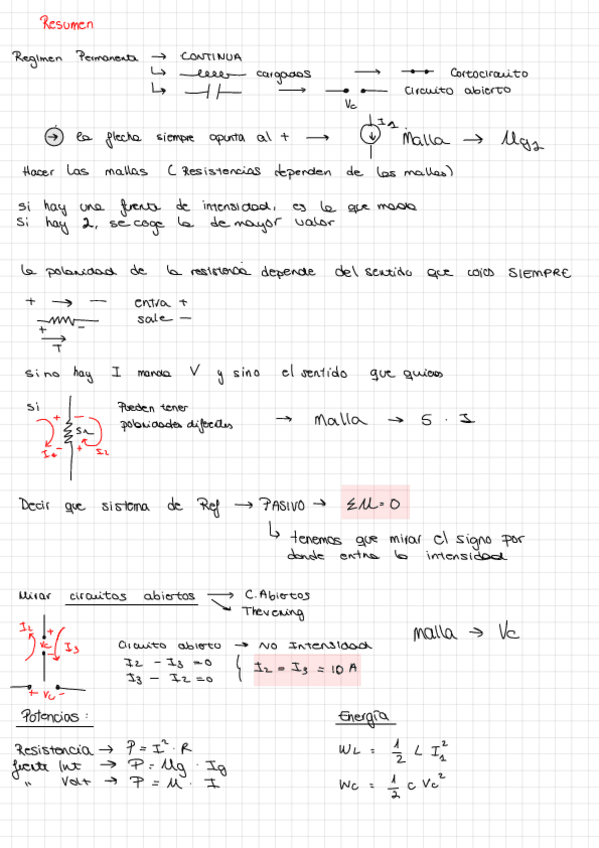 Resumen
Regimen Permanente → CONTINUA
↳ cargados → Cortocircuito
↳ → Circuito abierto
Vc
→ la flecha siempre apunta al + → I1 Malla → Ug2
Hacer las mallas (Resistencias dependen de las mallas)
si hay una fuente de intensidad, es la que manda
Si hay 2, se coge la de mayor valor
la polaridad de la resistencia depende del sentido que cojas SIEMPRE
+ → − entra +
+ − sale −
I
si no hay I manda V y sino el sentido que quieras
si + − Pueden tener
5Ω polaridades diferentes → Malla → 5 · I
I1 − + I2
Decir que sistema de Ref → PASIVO → ΣU=0
↳ tenemos que mirar el signo por
donde entra la intensidad
Mirar circuitos abiertos → C. Abiertos
Thevening
I2 + Vc − I3 Malla → Vc
Circuito abierto → No Intensidad
I2 - I3 = 0 { I2 = I3 = 10 A
I3 - I2 = 0
+ Vc −
Potencias: Energía
Resistencia → P = I² · R WL = 1/2 L I1²
fuente Int → P = Ug · Ig
" Volt → P = U · I Wc = 1/2 C Vc²